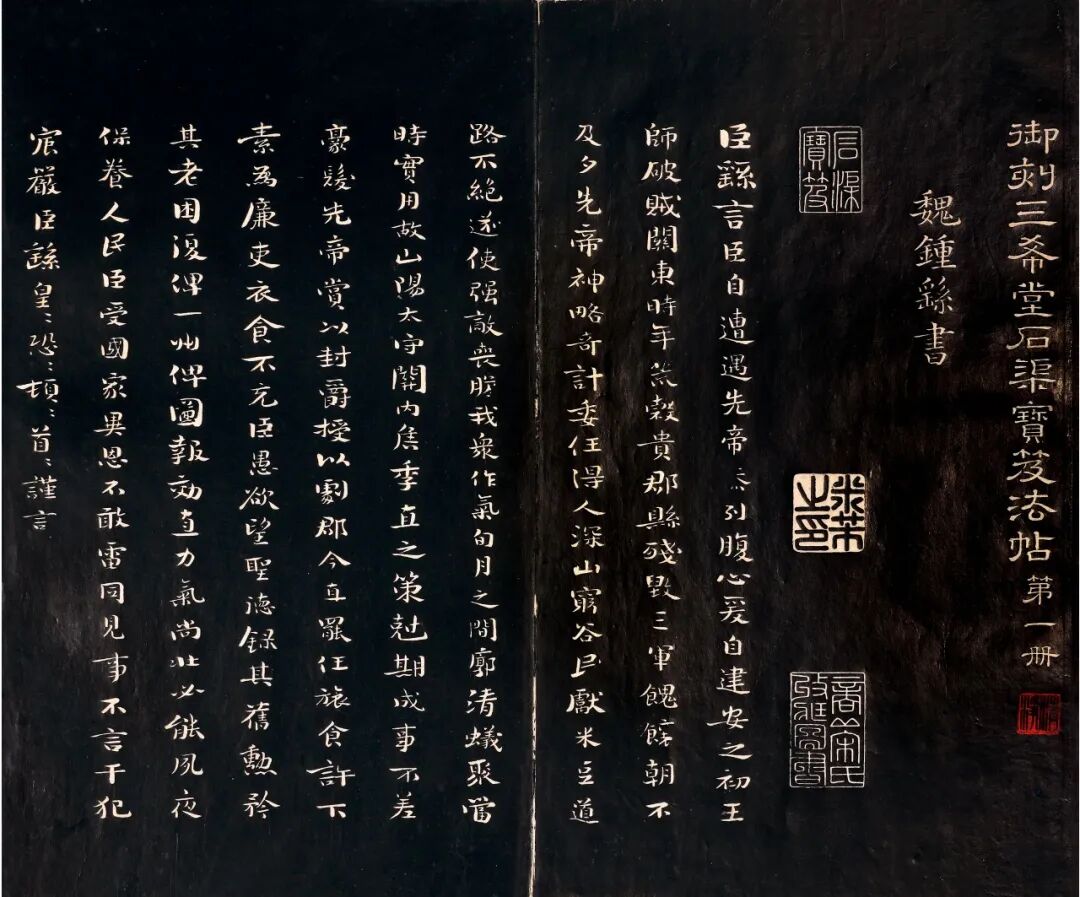 御刻三希堂石渠寶笈法帖第一冊
魏鍾繇書
石渠寶笈
臣繇言臣自遭遇先帝忝列腹心爰自建安之初王
師破賊關東時年荒穀貴郡縣殘毀三軍餽饟朝不
及夕先帝神略奇計委任得人深山窮谷民獻米豆道
路不絕遂使强敵喪膽我衆作氣旬月之間廓清蟻聚當
時實用故山陽太守關內侯季直之策尅期成事不差
豪髮先帝賞以封爵授以劇郡今直罷任旅食許下
素為廉吏衣食不充臣愚欲望聖德錄其舊勳矜
其老困復俾一州俾圖報効直力氣尚壯必能夙夜
保養人民臣受國家異恩不敢雷同見事不言干犯
宸嚴臣繇皇〻恐〻頓〻首〻謹言